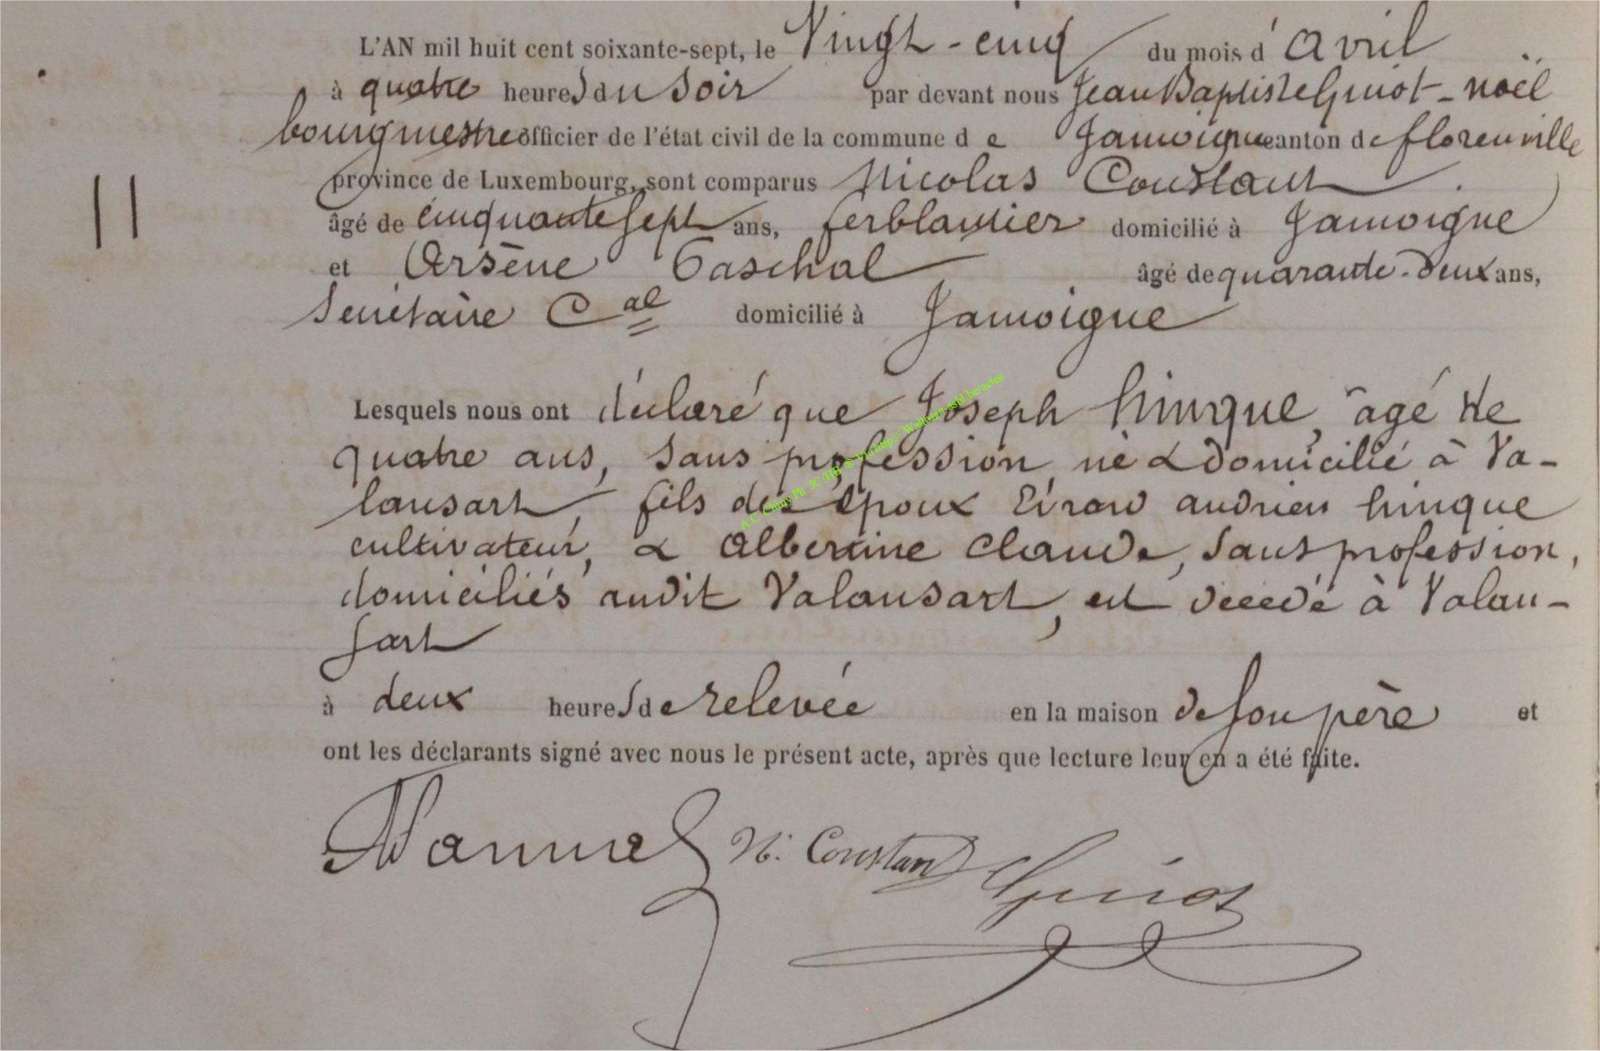 L'AN mil huit cent soixante-sept, le Vingt-cinq du mois d'avril
à quatre heures du soir par devant nous Jean Baptiste Guiot-noël
bourgmestre officier de l'état civil de la commune de Jamoigne canton de florenville
province de Luxembourg, sont comparus Nicolas Constant
âgé de cinquante sept ans, ferblantier domicilié à Jamoigne
11
et Arsène Paschal âgé de quarante-deux ans,
Secrétaire Cal domicilié à Jamoigne
Lesquels nous ont déclaré que Joseph hinque, âgé de
quatre ans, sans profession né & domicilié à Va-
lansart, fils des époux andrien hinque
cultivateur, & Albertine Claude, sans profession,
domiciliés audit Valansart, est décédé à Valan-
sart
à deux heures de relevée en la maison de son père et
ont les déclarants signé avec nous le présent acte, après que lecture leur en a été faite.
N. Constant Guiot